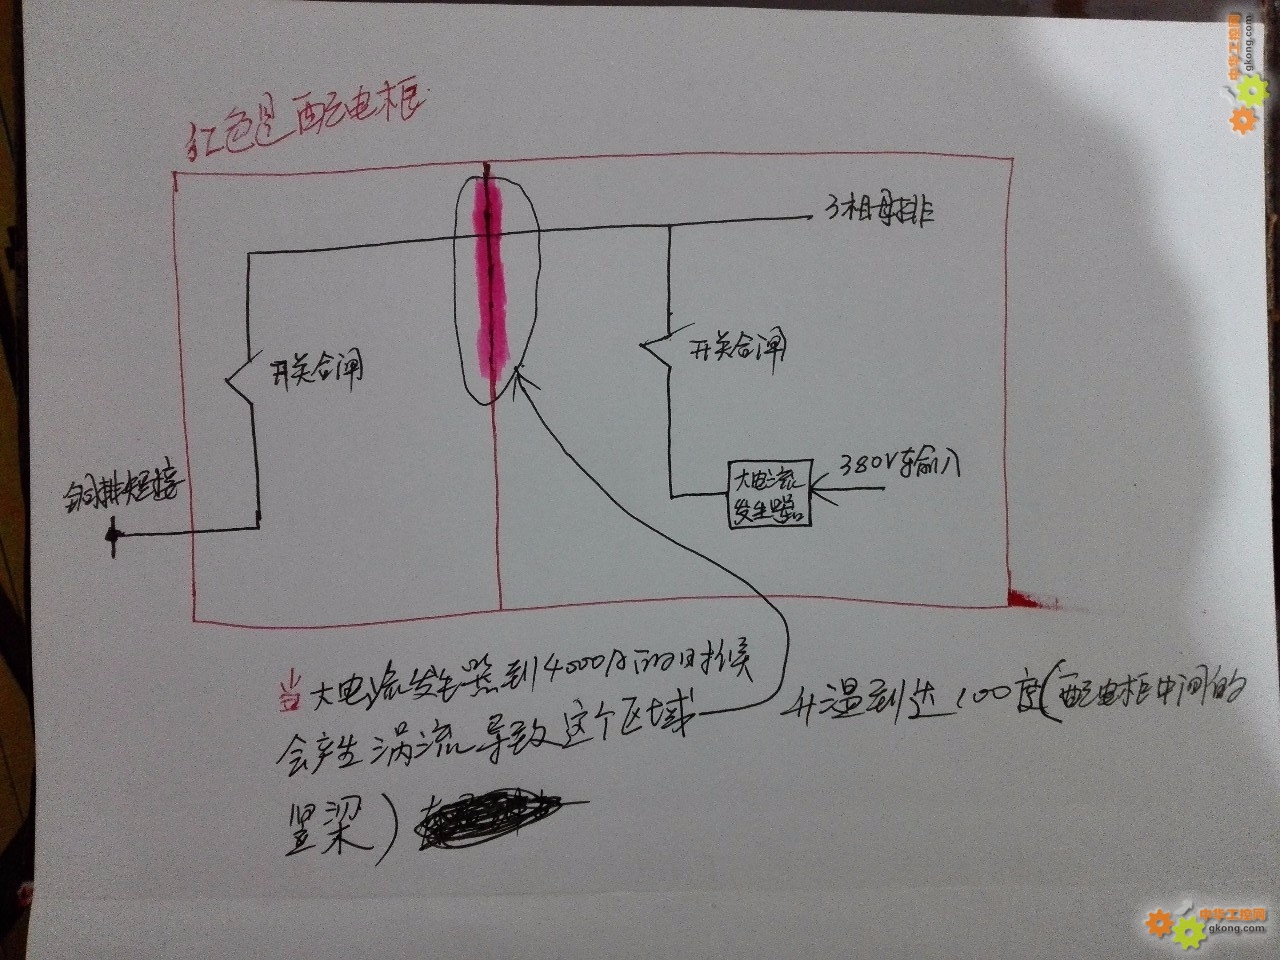 中华工控网
gkong.com
红色是配电柜
3相母排
开关合闸
开关合闸
380V输入
铜排短接
大电流
发生器
当大电流发生器到4000A的时候
会产生涡流导致这个区域 升温到达100度(配电柜中间的
竖梁)
中华工控网
gkong.com